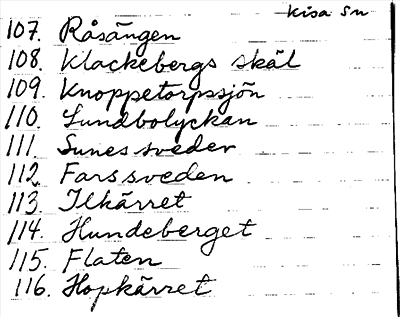 Kisa sn
107. Råsängen
108. Klackebergs skäl
109. Knoppetorpssjön
110. Lundbolyckan
111. Sunessveder
112. Farssveden
113. Ilkärret
114. Hundeberget
115. Flaten
116. Hopkärret